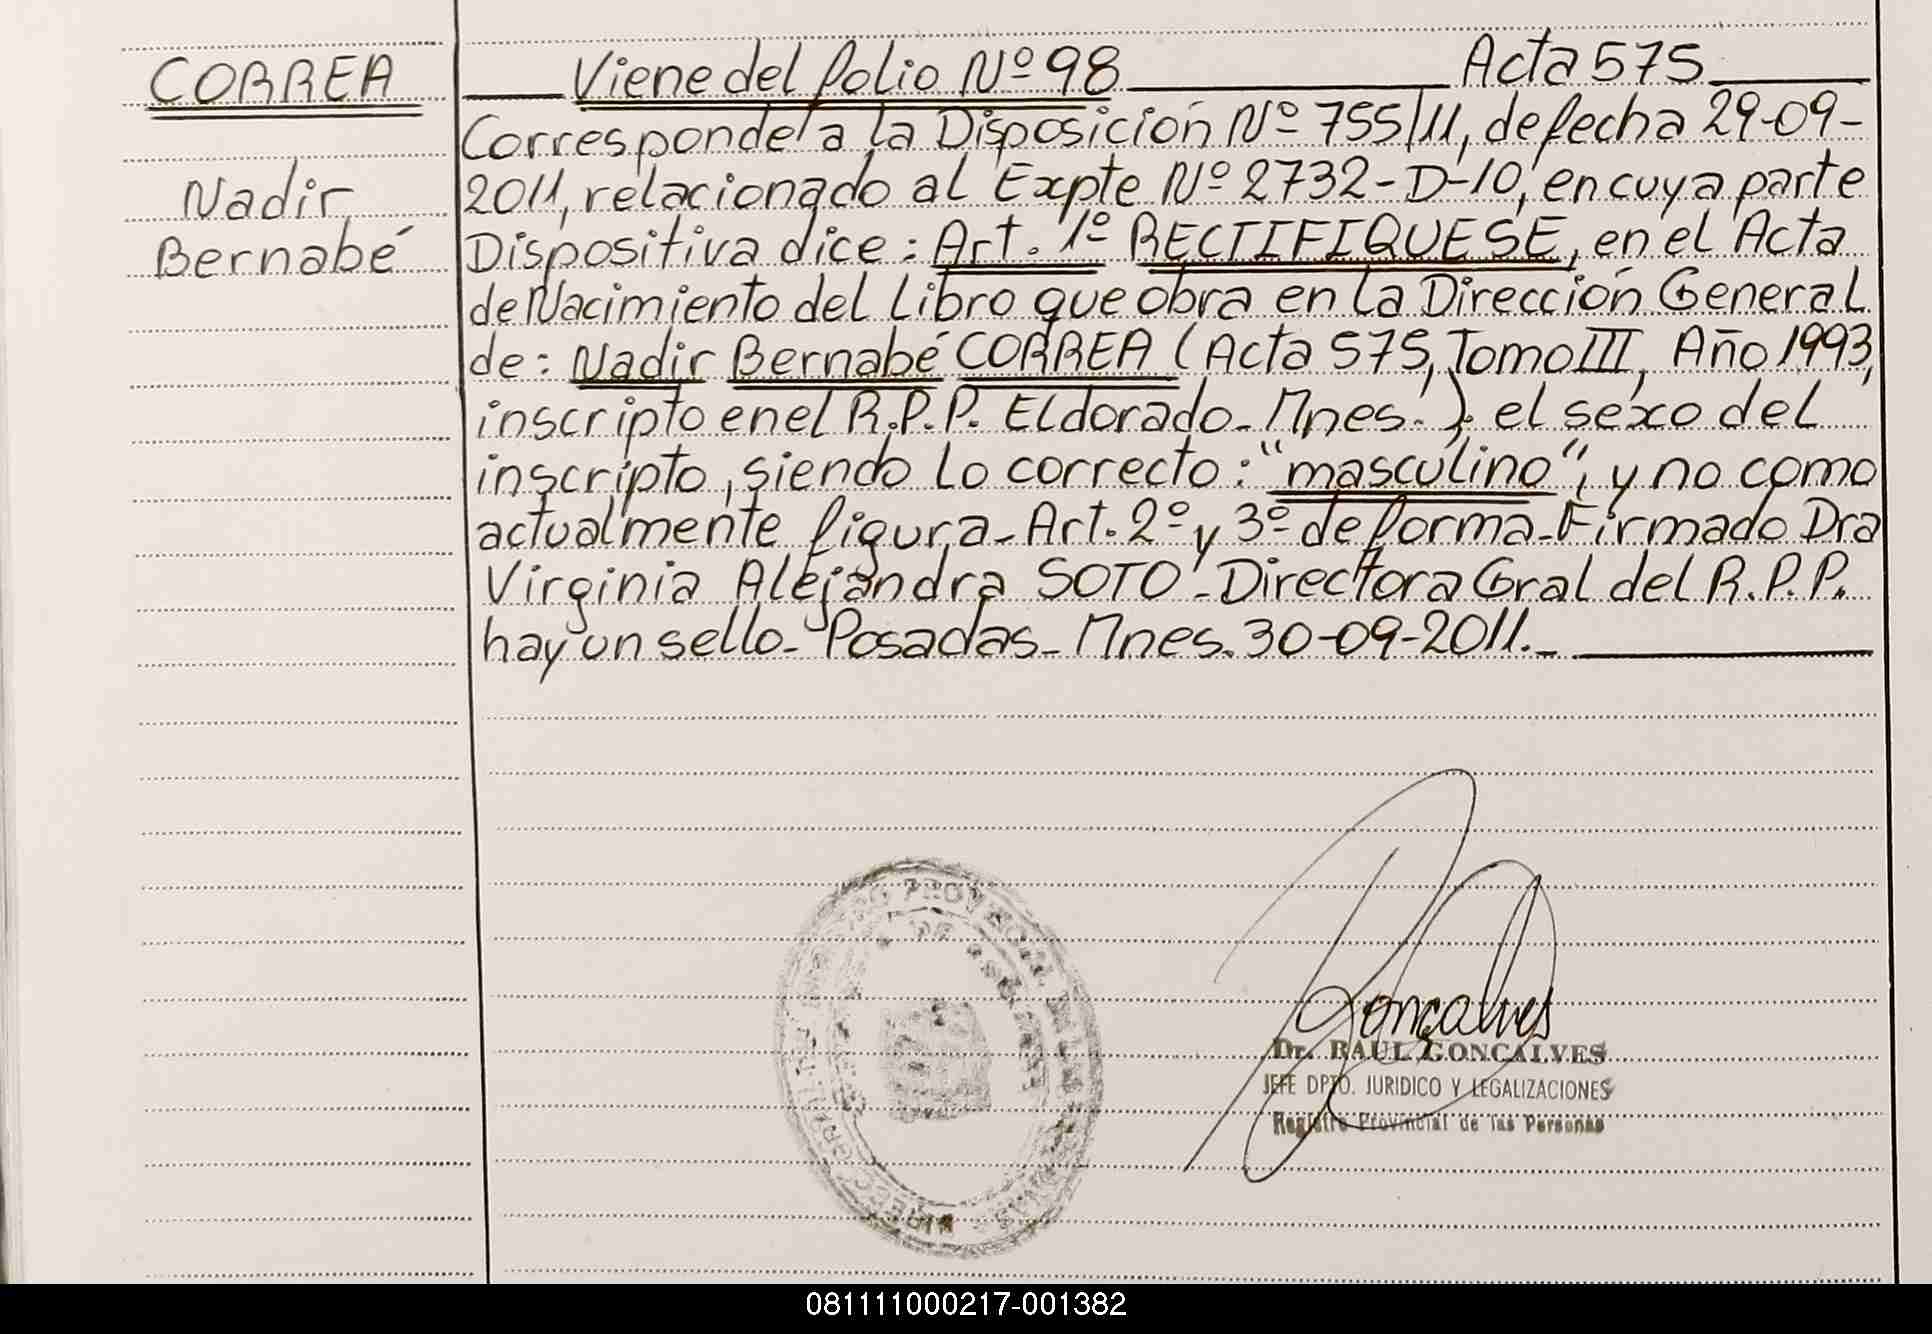 CORREA
Nadir
Bernabé
Viene del folio Nº 98 Acta 575
Corresponde a la Disposición Nº 755/11, de fecha 29-09-
2011, relacionado al Expte Nº 2732-D-10, en cuya parte
Dispositiva dice: Art. 1º RECTIFIQUESE, en el Acta
de Nacimiento del Libro que obra en la Dirección General
de: Nadir Bernabé CORREA (Acta 575, Tomo III, Año 1993,
inscripto en el R.P.P. Eldorado-Mnes.); el sexo del
inscripto, siendo lo correcto: "masculino", y no como
actualmente figura-Art. 2º y 3º de forma-Firmado Dra
Virginia Alejandra SOTO-Directora Gral del R.P.P.
hay un sello-Posadas-Mnes. 30-09-2011.-
Goncalves
Dr. RAUL GONCALVES
JEFE DPTO. JURIDICO Y LEGALIZACIONES
Registro Provincial de las Personas
081111000217-001382